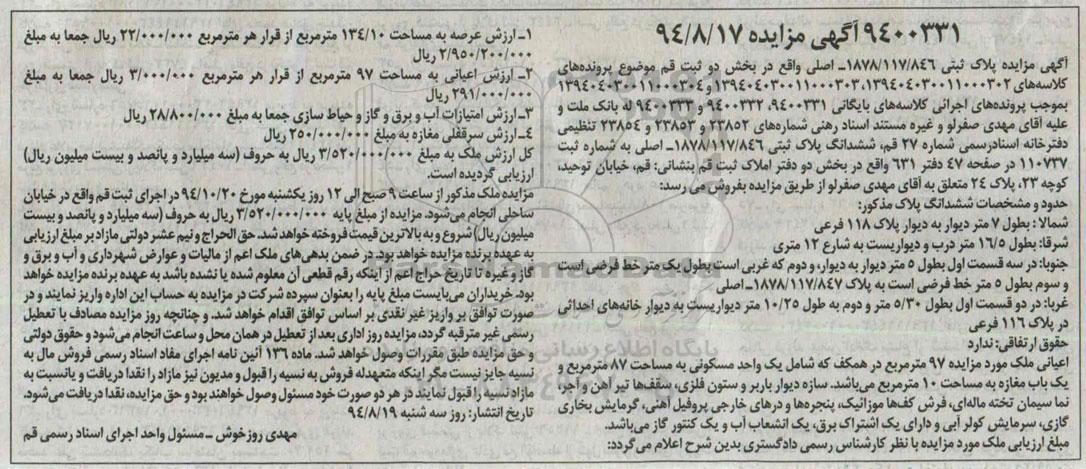 ۹۴۰۰۳۳۱ آگهی مزایده ۹۴/۸/۱۷
آگهی مزایده پلاک ثبتی ۱۸۷۸/۱۱۷/۸۴۶ـ اصلی واقع در بخش دو ثبت قم موضوع پرونده‌های
کلاسه‌های ۱۳۹۴۰۴۰۳۰۰۱۱۰۰۰۳۰۲، ۱۳۹۴۰۴۰۳۰۰۱۱۰۰۰۳۰۳ و ۱۳۹۴۰۴۰۳۰۰۱۱۰۰۰۳۰۴
بموجب پرونده‌های اجرائی کلاسه‌های بایگانی ۹۴۰۰۳۳۱، ۹۴۰۰۳۳۲ و ۹۴۰۰۳۳۳ له بانک ملت و
علیه آقای مهدی صفرلو و غیره مستند اسناد رهنی شماره‌های ۲۳۸۵۲ و ۲۳۸۵۳ و ۲۳۸۵۴ تنظیمی
دفترخانه اسنادرسمی شماره ۲۷ قم، ششدانگ پلاک ثبتی ۱۸۷۸/۱۱۷/۸۴۶ـ اصلی به شماره ثبت
۱۱۰۷۳۷ در صفحه ۴۷ دفتر ۶۳۱ واقع در بخش دو دفتر املاک ثبت قم بنشانی: قم، خیابان توحید،
کوچه ۲۳، پلاک ۲۴ متعلق به آقای مهدی صفرلو از طریق مزایده بفروش می رسد:
حدود و مشخصات ششدانگ پلاک مذکور:
شمالا : بطول ۷ متر دیوار به دیوار پلاک ۱۱۸ فرعی
شرقا: بطول ۱۶/۵ متر درب و دیواریست به شارع ۱۲ متری
جنوبا: در سه قسمت اول بطول ۵ متر دیوار به دیوار، و دوم که غربی است بطول یک متر خط فرضی است
و سوم بطول ۵ متر خط فرضی است به پلاک ۱۸۷۸/۱۱۷/۸۴۷ـ اصلی
غربا: در دو قسمت اول بطول ۵/۳۰ متر و دوم به طول ۱۰/۲۵ متر دیواریست به دیوار خانه‌های احداثی
در پلاک ۱۱۶ فرعی
حقوق ارتفاقی: ندارد
اعیانی ملک مورد مزایده ۹۷ مترمربع در همکف که شامل یک واحد مسکونی به مساحت ۸۷ مترمربع و
یک باب مغازه به مساحت ۱۰ مترمربع می‌باشد. سازه دیوار باربر و ستون فلزی، سقف‌ها تیر آهن و آجر،
نما سیمان تخته ماله‌ای، فرش کف‌ها موزائیک، پنجره‌ها و درهای خارجی پروفیل آهنی، گرمایش بخاری
گازی، سرمایش کولر آبی و دارای یک اشتراک برق، یک انشعاب آب و یک کنتور گاز می‌باشد.
مبلغ ارزیابی ملک مورد مزایده با نظر کارشناس رسمی دادگستری بدین شرح اعلام می‌گردد:
۱ـ ارزش عرصه به مساحت ۱۳۴/۱۰ مترمربع از قرار هر مترمربع ۲۲/۰۰۰/۰۰۰ ریال جمعا به مبلغ
۲/۹۵۰/۲۰۰/۰۰۰ ریال
۲ـ ارزش اعیانی به مساحت ۹۷ مترمربع از قرار هر مترمربع ۳/۰۰۰/۰۰۰ ریال جمعا به مبلغ
۲۹۱/۰۰۰/۰۰۰ ریال
۳ـ ارزش امتیازات آب و برق و گاز و حیاط سازی جمعا به مبلغ ۲۸/۸۰۰/۰۰۰ ریال
۴ـ ارزش سرقفلی مغازه به مبلغ ۲۵۰/۰۰۰/۰۰۰ ریال
کل ارزش ملک به مبلغ ۳/۵۲۰/۰۰۰/۰۰۰ ریال به حروف (سه میلیارد و پانصد و بیست میلیون ریال)
ارزیابی گردیده است.
مزایده ملک مذکور از ساعت ۹ صبح الی ۱۲ روز یکشنبه مورخ ۹۴/۱۰/۲۰ در اجرای ثبت قم واقع در خیابان
ساحلی انجام می‌شود. مزایده از مبلغ پایه ۳/۵۲۰/۰۰۰/۰۰۰ ریال به حروف (سه میلیارد و پانصد و بیست
میلیون ریال) شروع و به بالاترین قیمت فروخته خواهد شد. حق الحراج و نیم عشر دولتی مازاد بر مبلغ ارزیابی
به عهده برنده مزایده خواهد بود. در ضمن بدهی‌های ملک اعم از مالیات و عوارض شهرداری و آب و برق و
گاز و غیره تا تاریخ حراج اعم از اینکه رقم قطعی آن معلوم شده یا نشده باشد به عهده برنده مزایده خواهد
بود. خریداران می‌بایست مبلغ پایه را بعنوان سپرده شرکت در مزایده به حساب این اداره واریز نمایند و در
صورت توافق بر واریز غیر نقدی بر اساس توافق اقدام خواهد شد. و چنانچه روز مزایده مصادف با تعطیل
رسمی غیر مترقبه گردد، مزایده روز اداری بعد از تعطیل در همان محل و ساعت انجام می‌شود و حقوق دولتی
و حق مزایده طبق مقررات وصول خواهد شد. ماده ۱۳۶ آئین نامه اجرای مفاد اسناد رسمی فروش مال به
نسیه جایز نیست مگر اینکه متعهدله فروش به نسیه را قبول و مدیون نیز مازاد را نقدا دریافت و یانسبت به
مازاد نسیه را قبول نمایند در هر دو صورت خود مسئول وصول خواهند بود و حق مزایده، نقدا دریافت می‌شود.
تاریخ انتشار: روز سه شنبه ۹۴/۸/۱۹
مهدی روزخوش ـ مسئول واحد اجرای اسناد رسمی قم